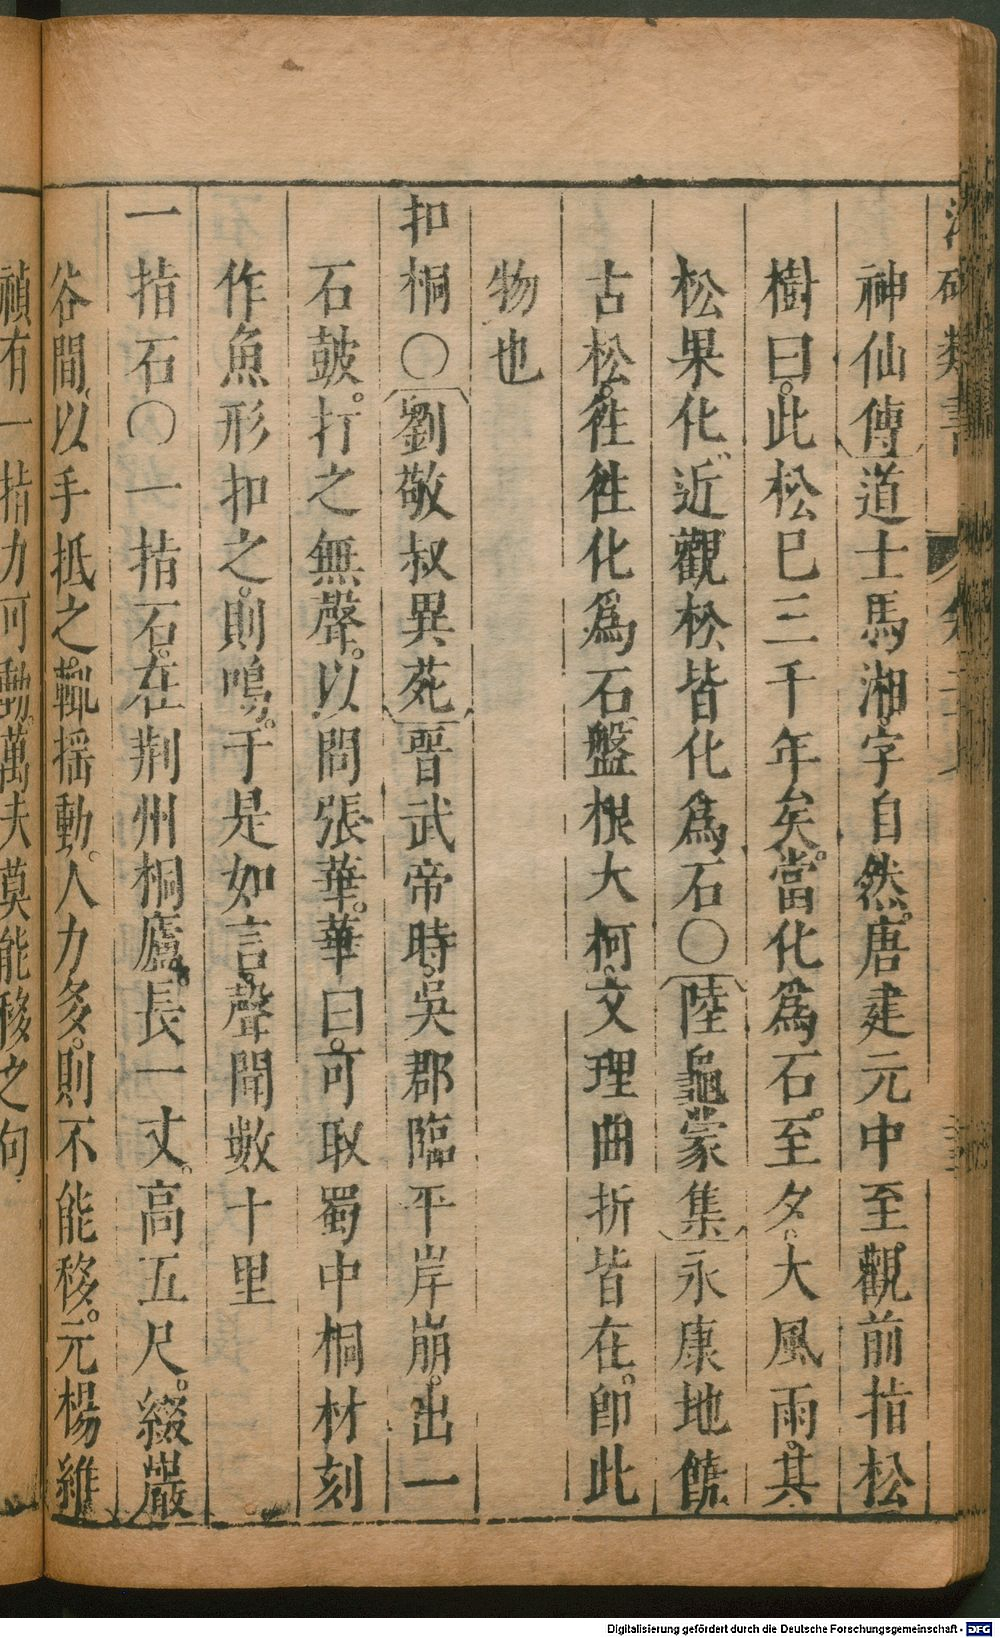 類書
神仙傳道士馬湘字自然。唐建元中至。觀前指松
樹曰。此松已三千年矣。當化為石。至夕。大風雨。其
松果化。近觀松皆化為石〇陸龜蒙集永康地饒
古松。徃徃化為石盤根大柯。文理曲折皆在。即此
物也
扣桐〇劉敬叔異苑晉武帝時。吳郡臨平岸崩。出一
石鼓。打之無聲。以問張華。華曰。可取蜀中桐材刻
作魚形扣之。則鳴。于是如言。聲聞數十里
一指石〇一指石。在荆州桐廬。長一丈。高五尺。綴巖
谷間。以手抵之。輒揺動。人力多。則不能移。元楊維
禎有一指力可動。萬夫莫能移之句
Digitalisierung gefördert durch die Deutsche Forschungsgemeinschaft - DFG